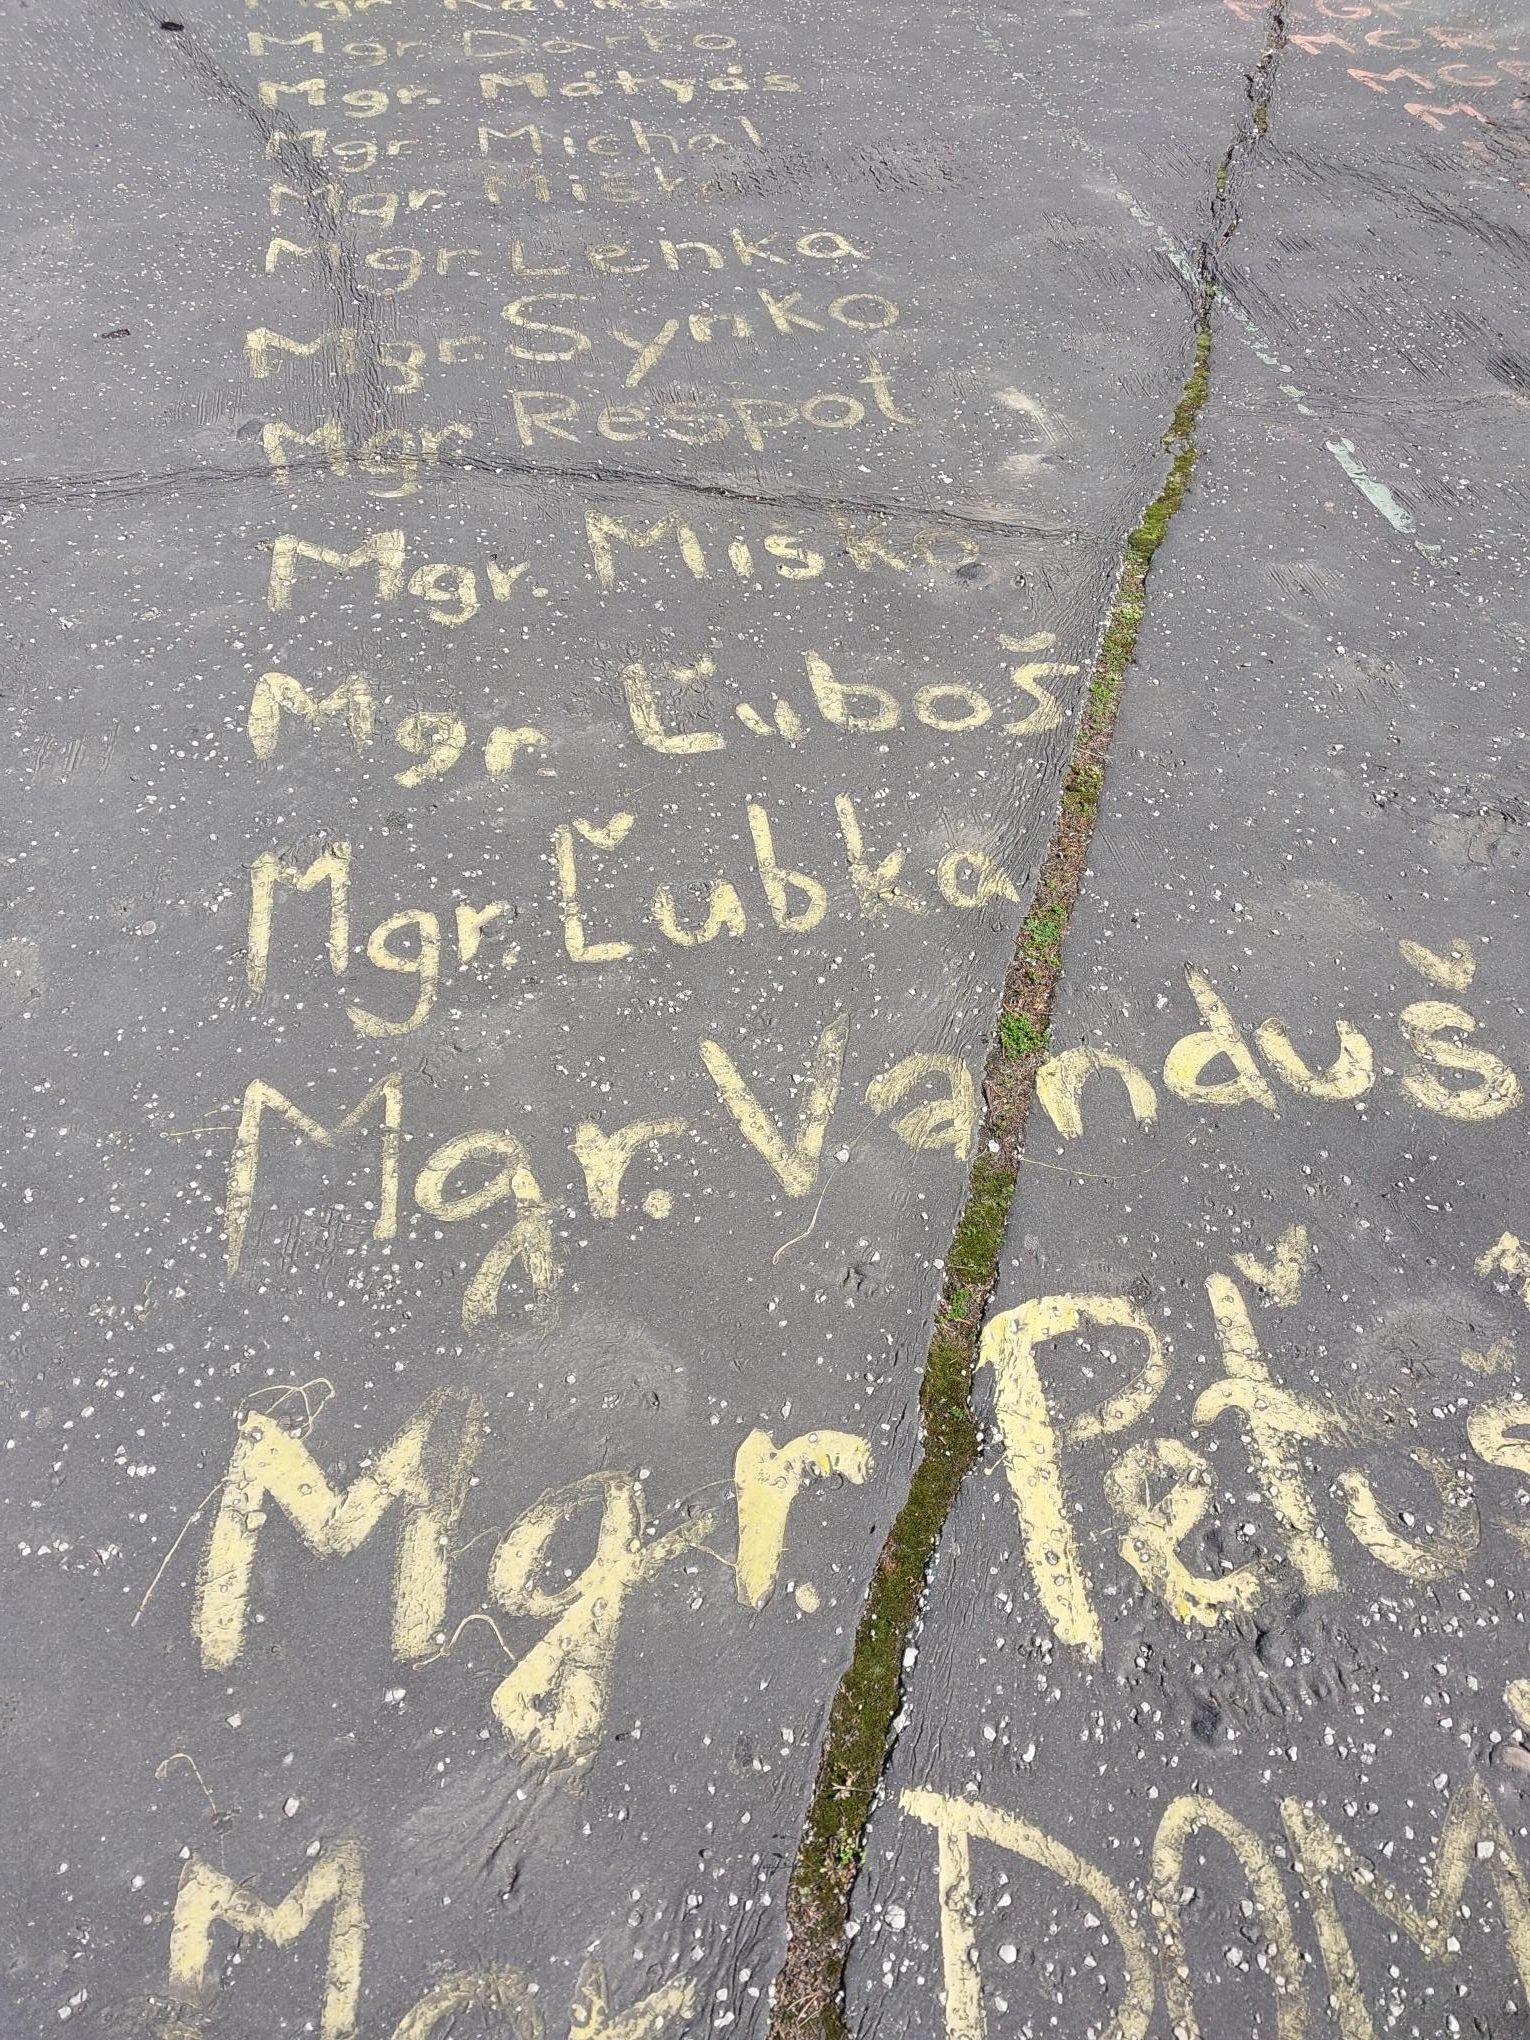 Mgr. Darko
Mgr. Matyás
Mgr. Michal
Mgr.
Mgr. Lenka
Mgr. Synko
Mgr. Respot
Mgr. Miško
Mgr. Ľuboš
Mgr. Ľubka
Mgr. Vanduš
Mgr.
Mgr.
MGR.
MGR